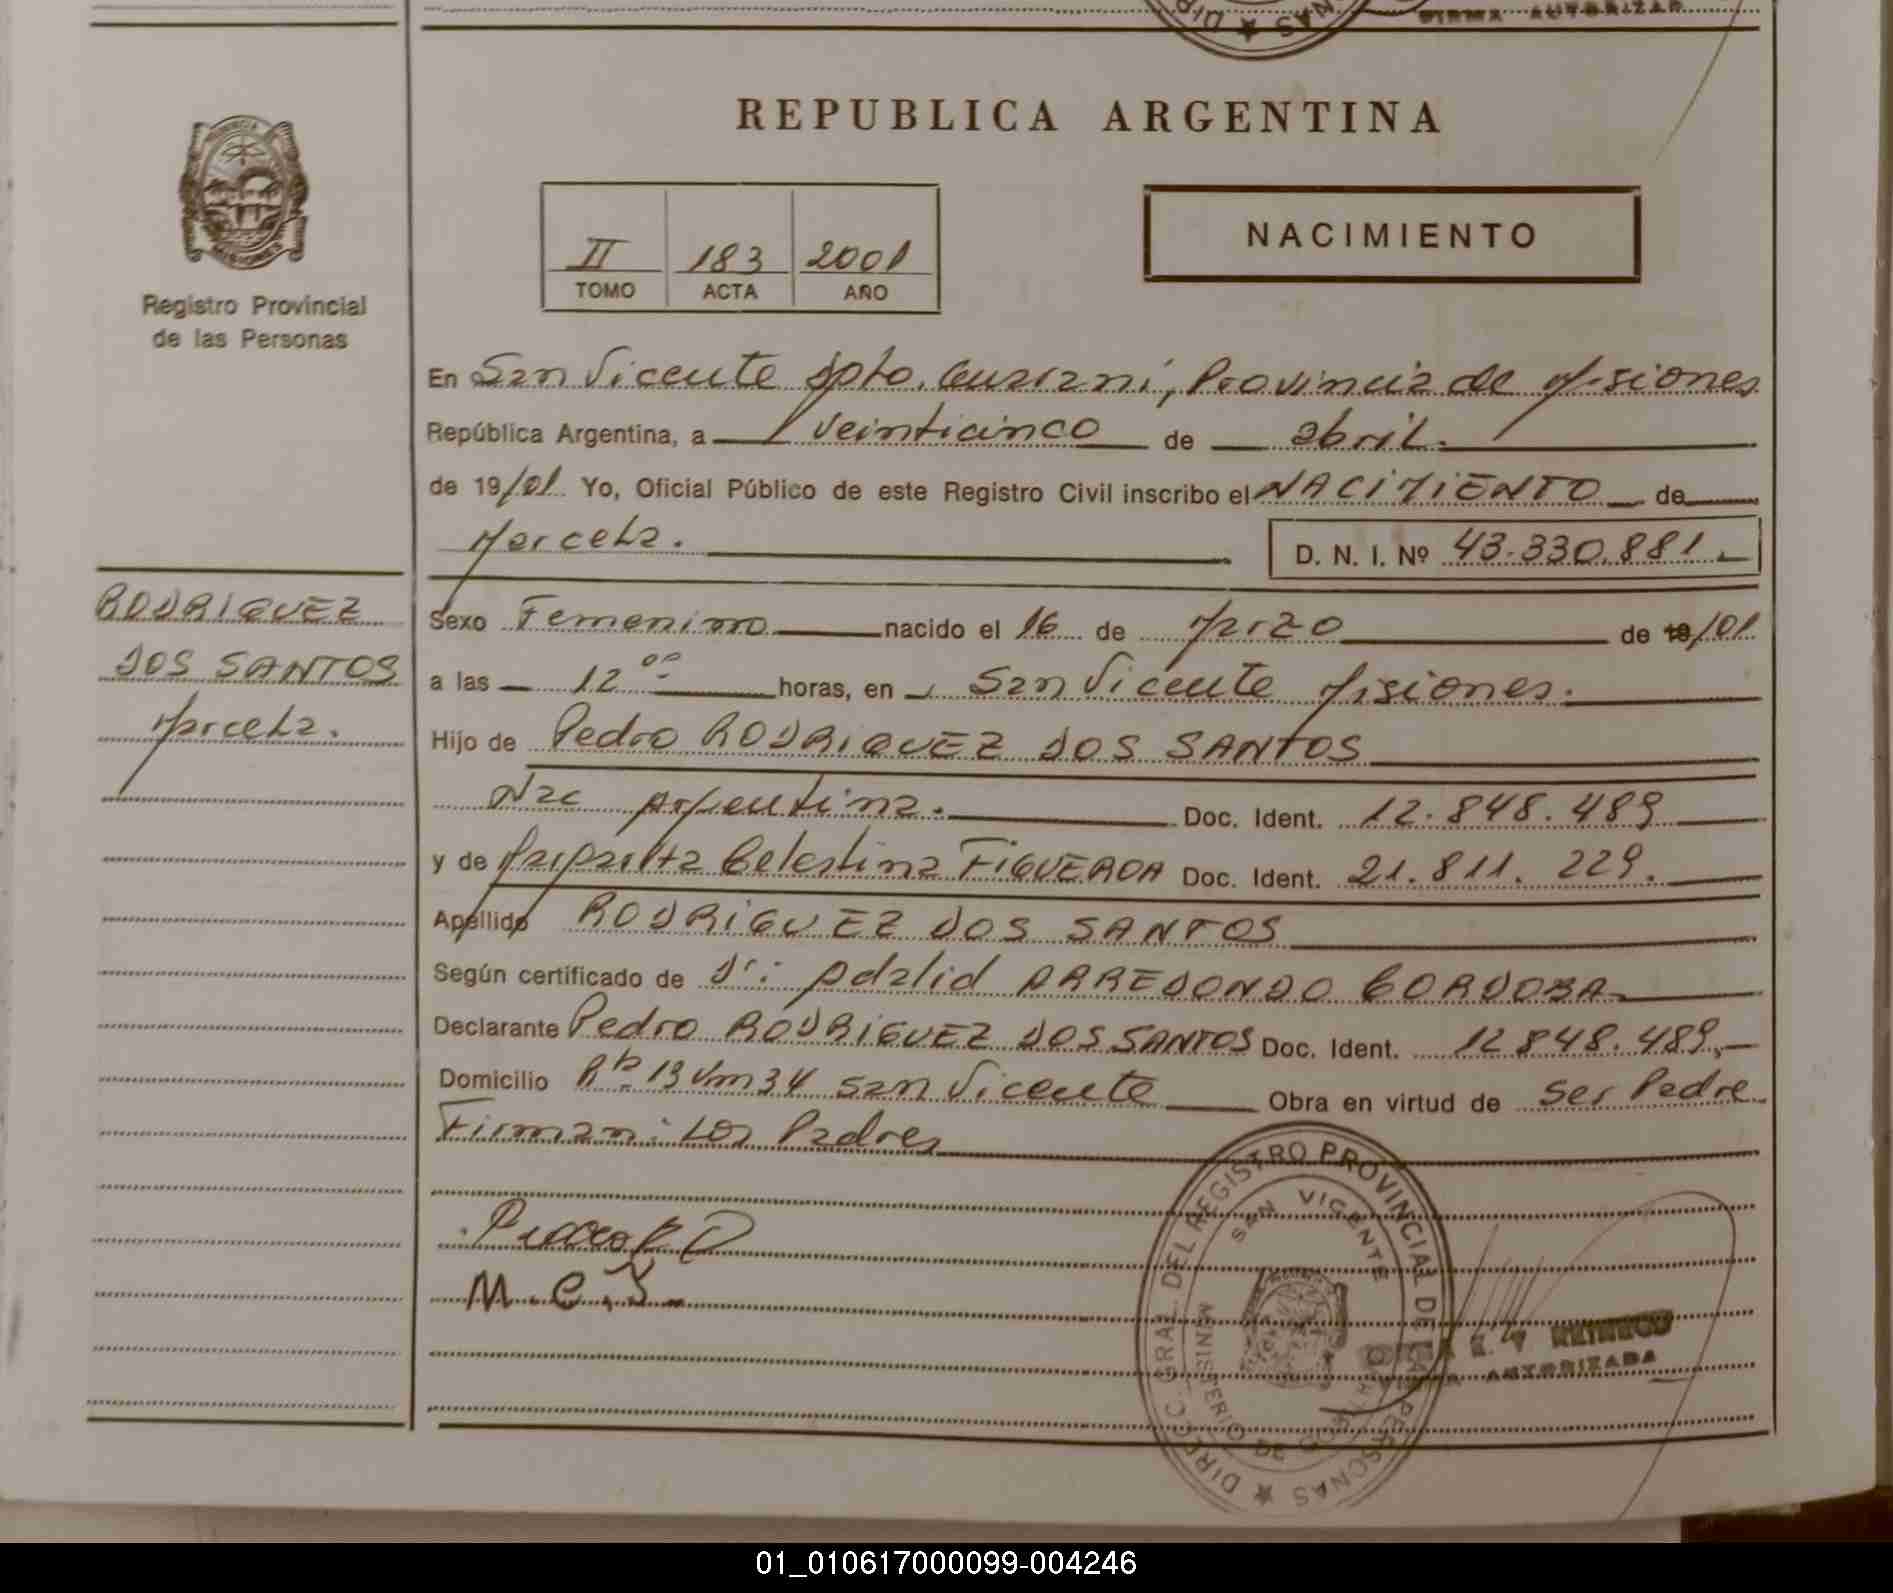 REPUBLICA ARGENTINA
II 183 2001
TOMO ACTA AÑO
NACIMIENTO
Registro Provincial
de las Personas
En San Vicente Dpto. Guaraní, Provincia de Misiones
República Argentina, a veinticinco de abril.
de 19/01 Yo, Oficial Público de este Registro Civil inscribo el NACIMIENTO de
Marcela.
D. N. I. Nº 43.330.881.
RODRIGUEZ
DOS SANTOS
Marcela.
Sexo Femenino nacido el 16 de Marzo de 19/01
a las 12 ºº horas, en San Vicente Misiones.
Hijo de Pedro RODRIGUEZ DOS SANTOS
Nac Argentina. Doc. Ident. 12.848.489
y de Margarita Celestina FIGUEROA Doc. Ident. 21.811.229.
Apellido RODRIGUEZ DOS SANTOS
Según certificado de Dr: Adalid ARREDONDO CORDOBA
Declarante Pedro RODRIGUEZ DOS SANTOS Doc. Ident. 12848.489,
Domicilio Rta 13 Km 34 San Vicente Obra en virtud de ser Padre
Firman: Los Padres
M.C.F.
DIRECC. GRAL. DEL REGISTRO PROVINCIAL DE LAS PERSONAS
SAN VICENTE
MINISTERIO DE GOBIERNO
FIRMA AUTORIZADA
01_010617000099-004246